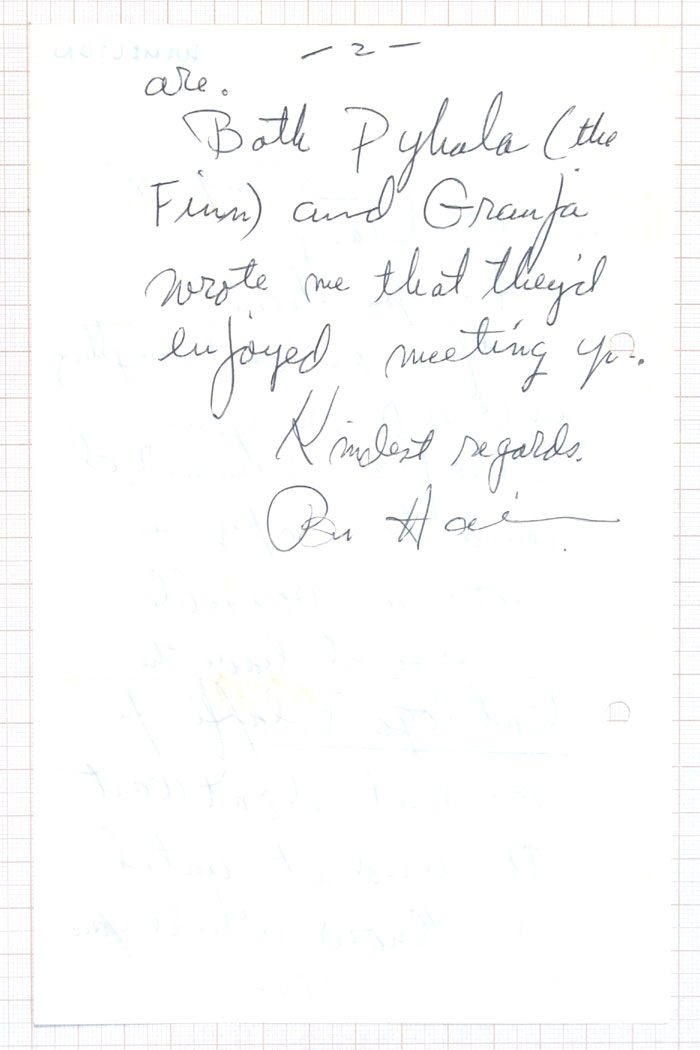 — 2 —
are.
Both Pyhala (the
Finn) and Granja
wrote me that they'd
enjoyed meeting yu.
Kindest regards.